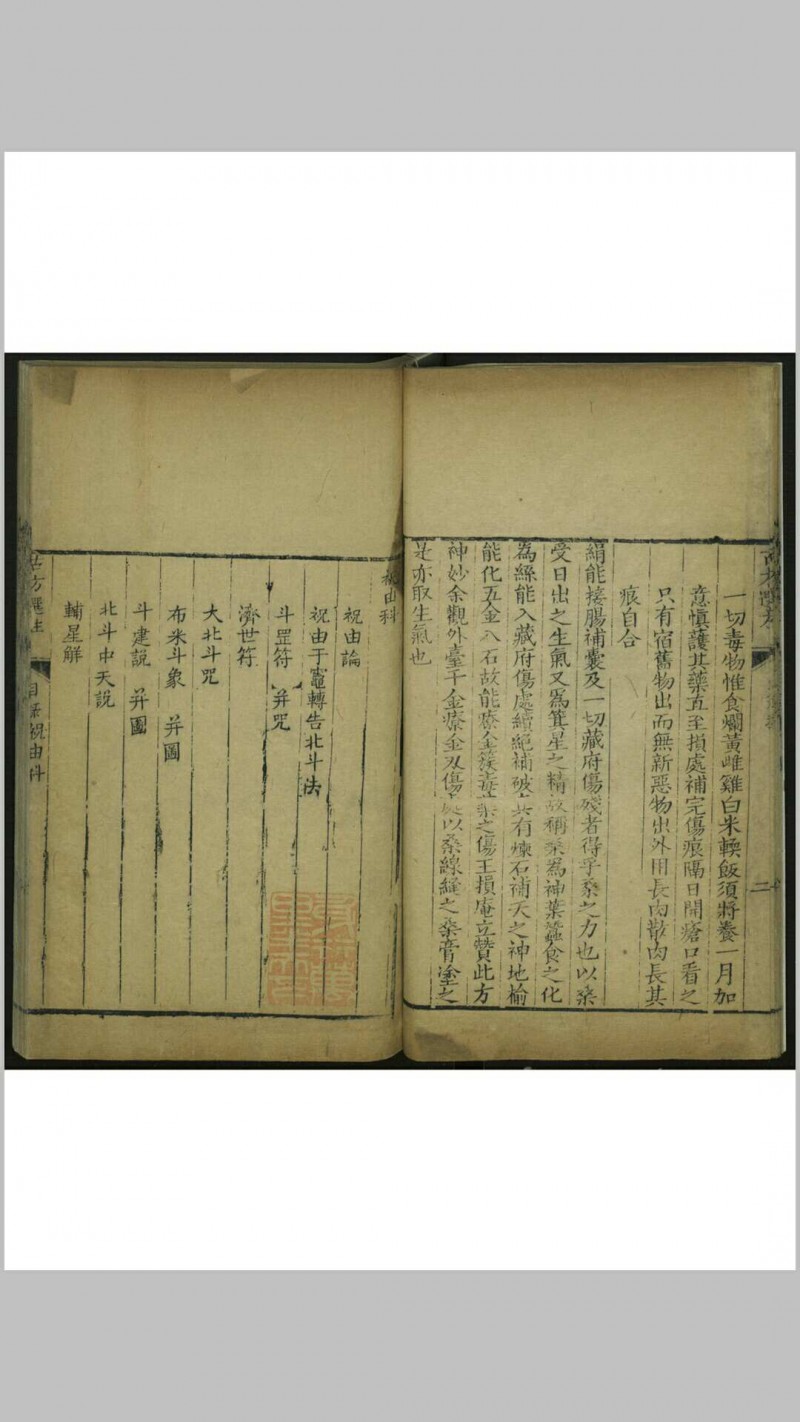 一切毒物惟食爛黃雌雞白米軟飯須將養一月加
意慎護其藥直至損處補完傷痕隔日開瘡口看之
只有宿舊物出而無新惡物出外用長肉散肉長其
痕自合
絹能接腸補囊及一切藏府傷殘者得乎桑之力也以桑
受日出之生氣又為箕星之精故稱桑為神葉蠶食之化
為絲能入藏府傷處續絕補破共有煉石補天之神地榆
能化五金八石故能療金簇毒藥之傷王損庵立贊此方
神妙余觀外臺千金療金刃傷以桑線縫之桑膏塗之
是亦取生氣也
祝由科
祝由論
祝由于竈轉告北斗法
斗罡符 并咒
濟世符
大北斗咒
布米斗象 并圖
斗建說 并圖
北斗中天說
輔星解
古方選注
目录祝由科